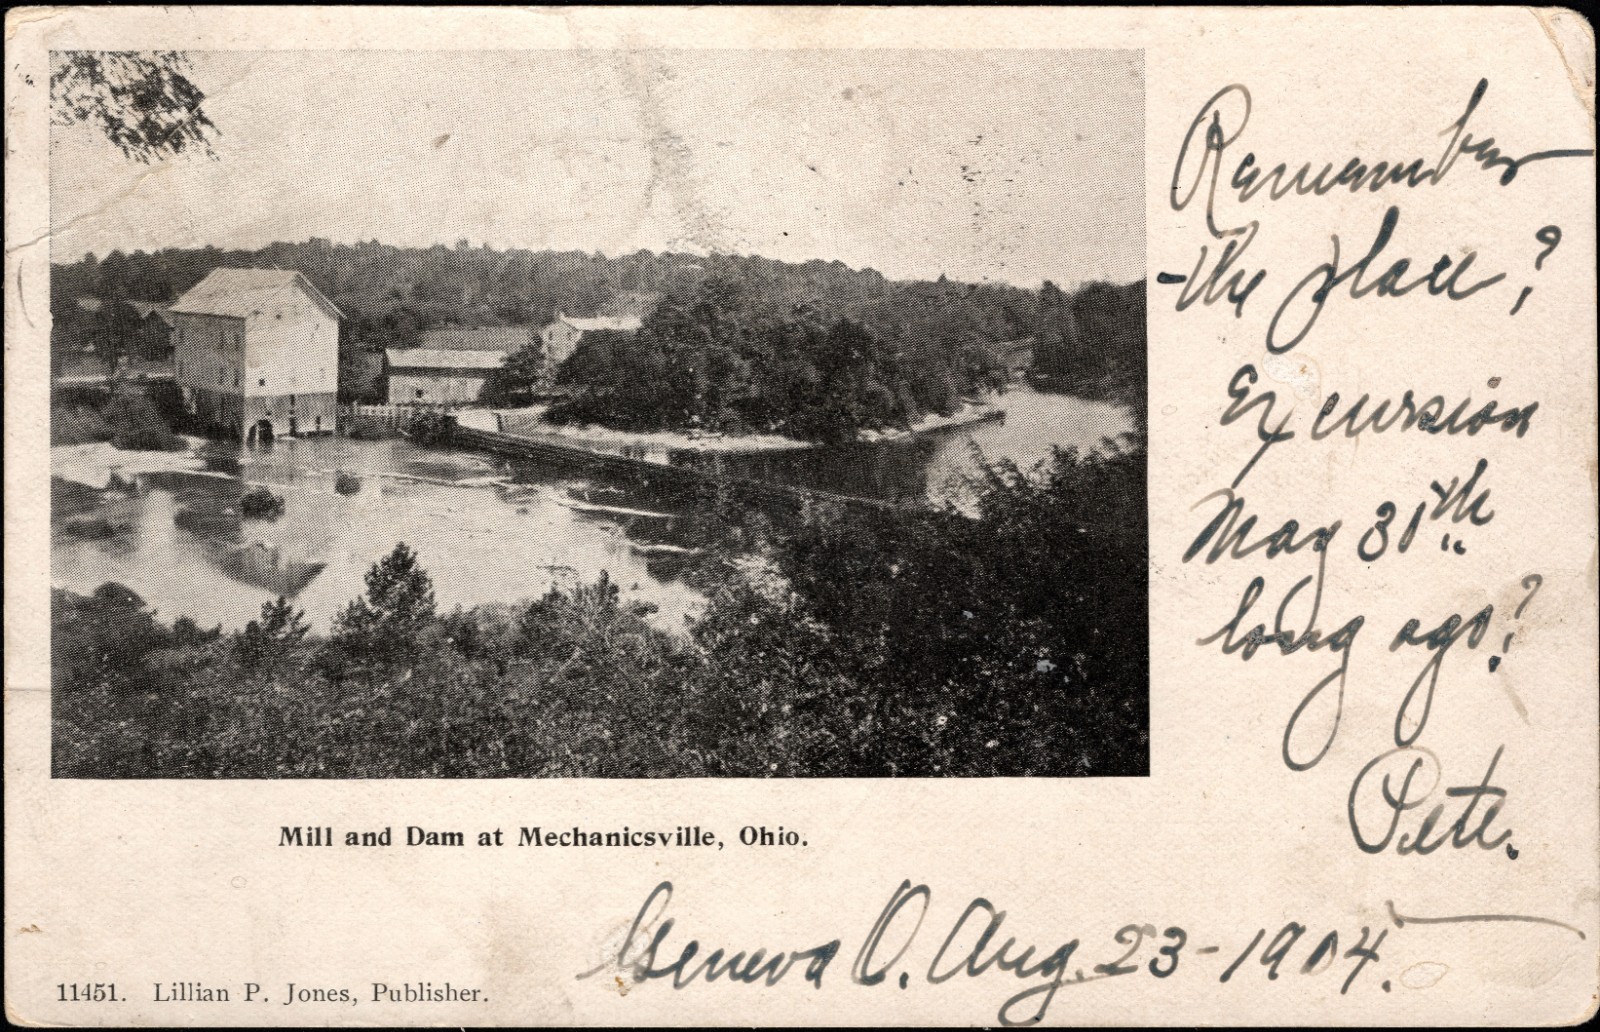 Remember
the place?
Excursion
May 30th
long ago?
Pete.
Mill and Dam at Mechanicsville, Ohio.
Geneva O. Aug. 23-1904.
11451. Lillian P. Jones, Publisher.